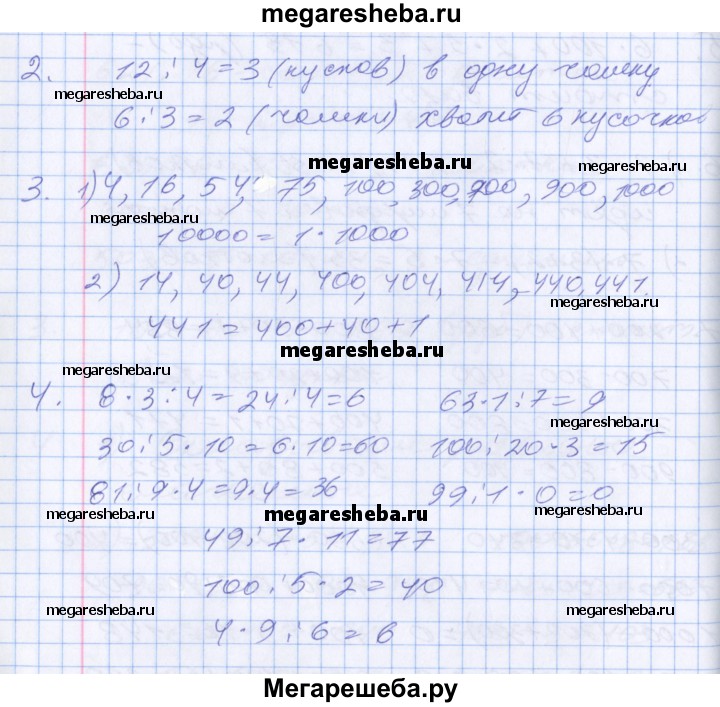 megaresheba.ru
2. 12 : 4 = 3 (кусков) в одну чашку
megaresheba.ru
6 : 3 = 2 (чашки) хватит 6 кусочков
megaresheba.ru
megaresheba.ru
3. 1) 4, 16, 54, 75, 100, 300, 700, 900, 1000
megaresheba.ru
10000 = 1 · 1000
2) 14, 40, 44, 400, 404, 414, 440, 441.
megaresheba.ru
441 = 400 + 40 + 1
megaresheba.ru
megaresheba.ru
4. 8 · 3 : 4 = 24 : 4 = 6 63 · 1 : 7 = 9
megaresheba.ru
30 : 5 · 10 = 6 · 10 = 60 100 : 20 · 3 = 15
81 : 9 · 4 = 9 · 4 = 36 99 : 1 · 0 = 0
megaresheba.ru megaresheba.ru megaresheba.ru
49 : 7 · 11 = 77
100 : 5 · 2 = 40
megaresheba.ru megaresheba.ru
4 · 9 : 6 = 6
Мегарешеба.ру